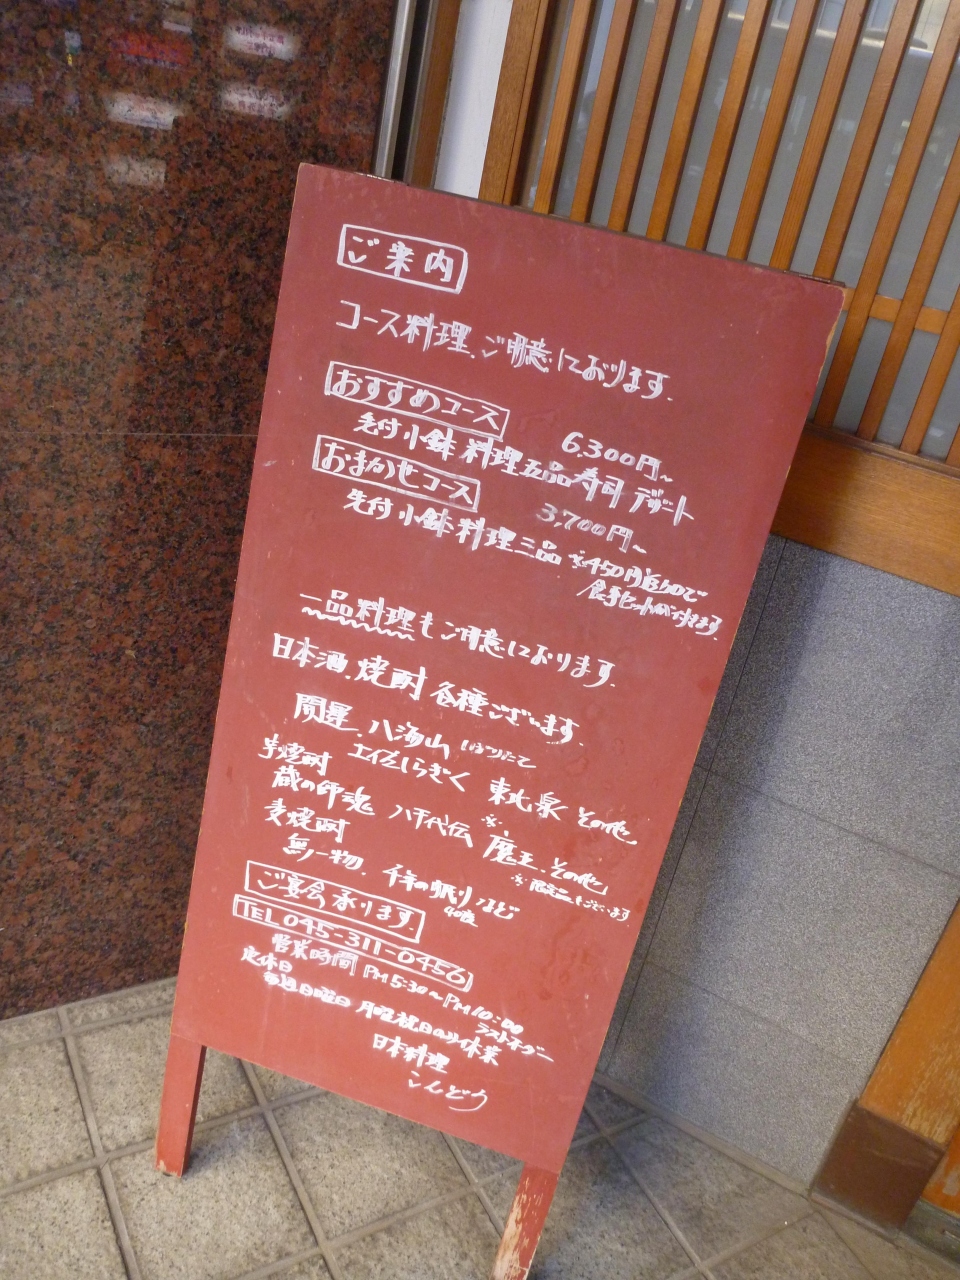 ご案内
コース料理、ご用意しております。
おすすめコース 6,300円〜
先付 小鉢 料理五品 寿司 デザート
おまかせコース 3,700円〜
先付 小鉢 料理三品 ※450円追加で
食事セットが付きます。
一品料理もご用意しております。
日本酒、焼酎 各種ございます。
開運、八海山 しぼりたて
芋焼酎
蔵の師魂 八千代伝 ※魔王、その他
麦焼酎 ※限定品もございます
無一物、千年の眠りなど
40度
ご宴会承ります。
TEL 045-311-0456
営業時間 PM 5:30〜PM 10:00
ラストオーダー
定休日
毎週日曜日 月曜祝日のみ休業
日本料理
こんどう